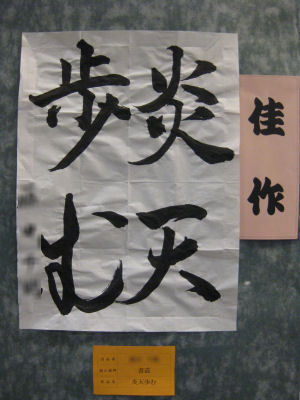 炎天
歩む
佳作
書道
炎天歩む